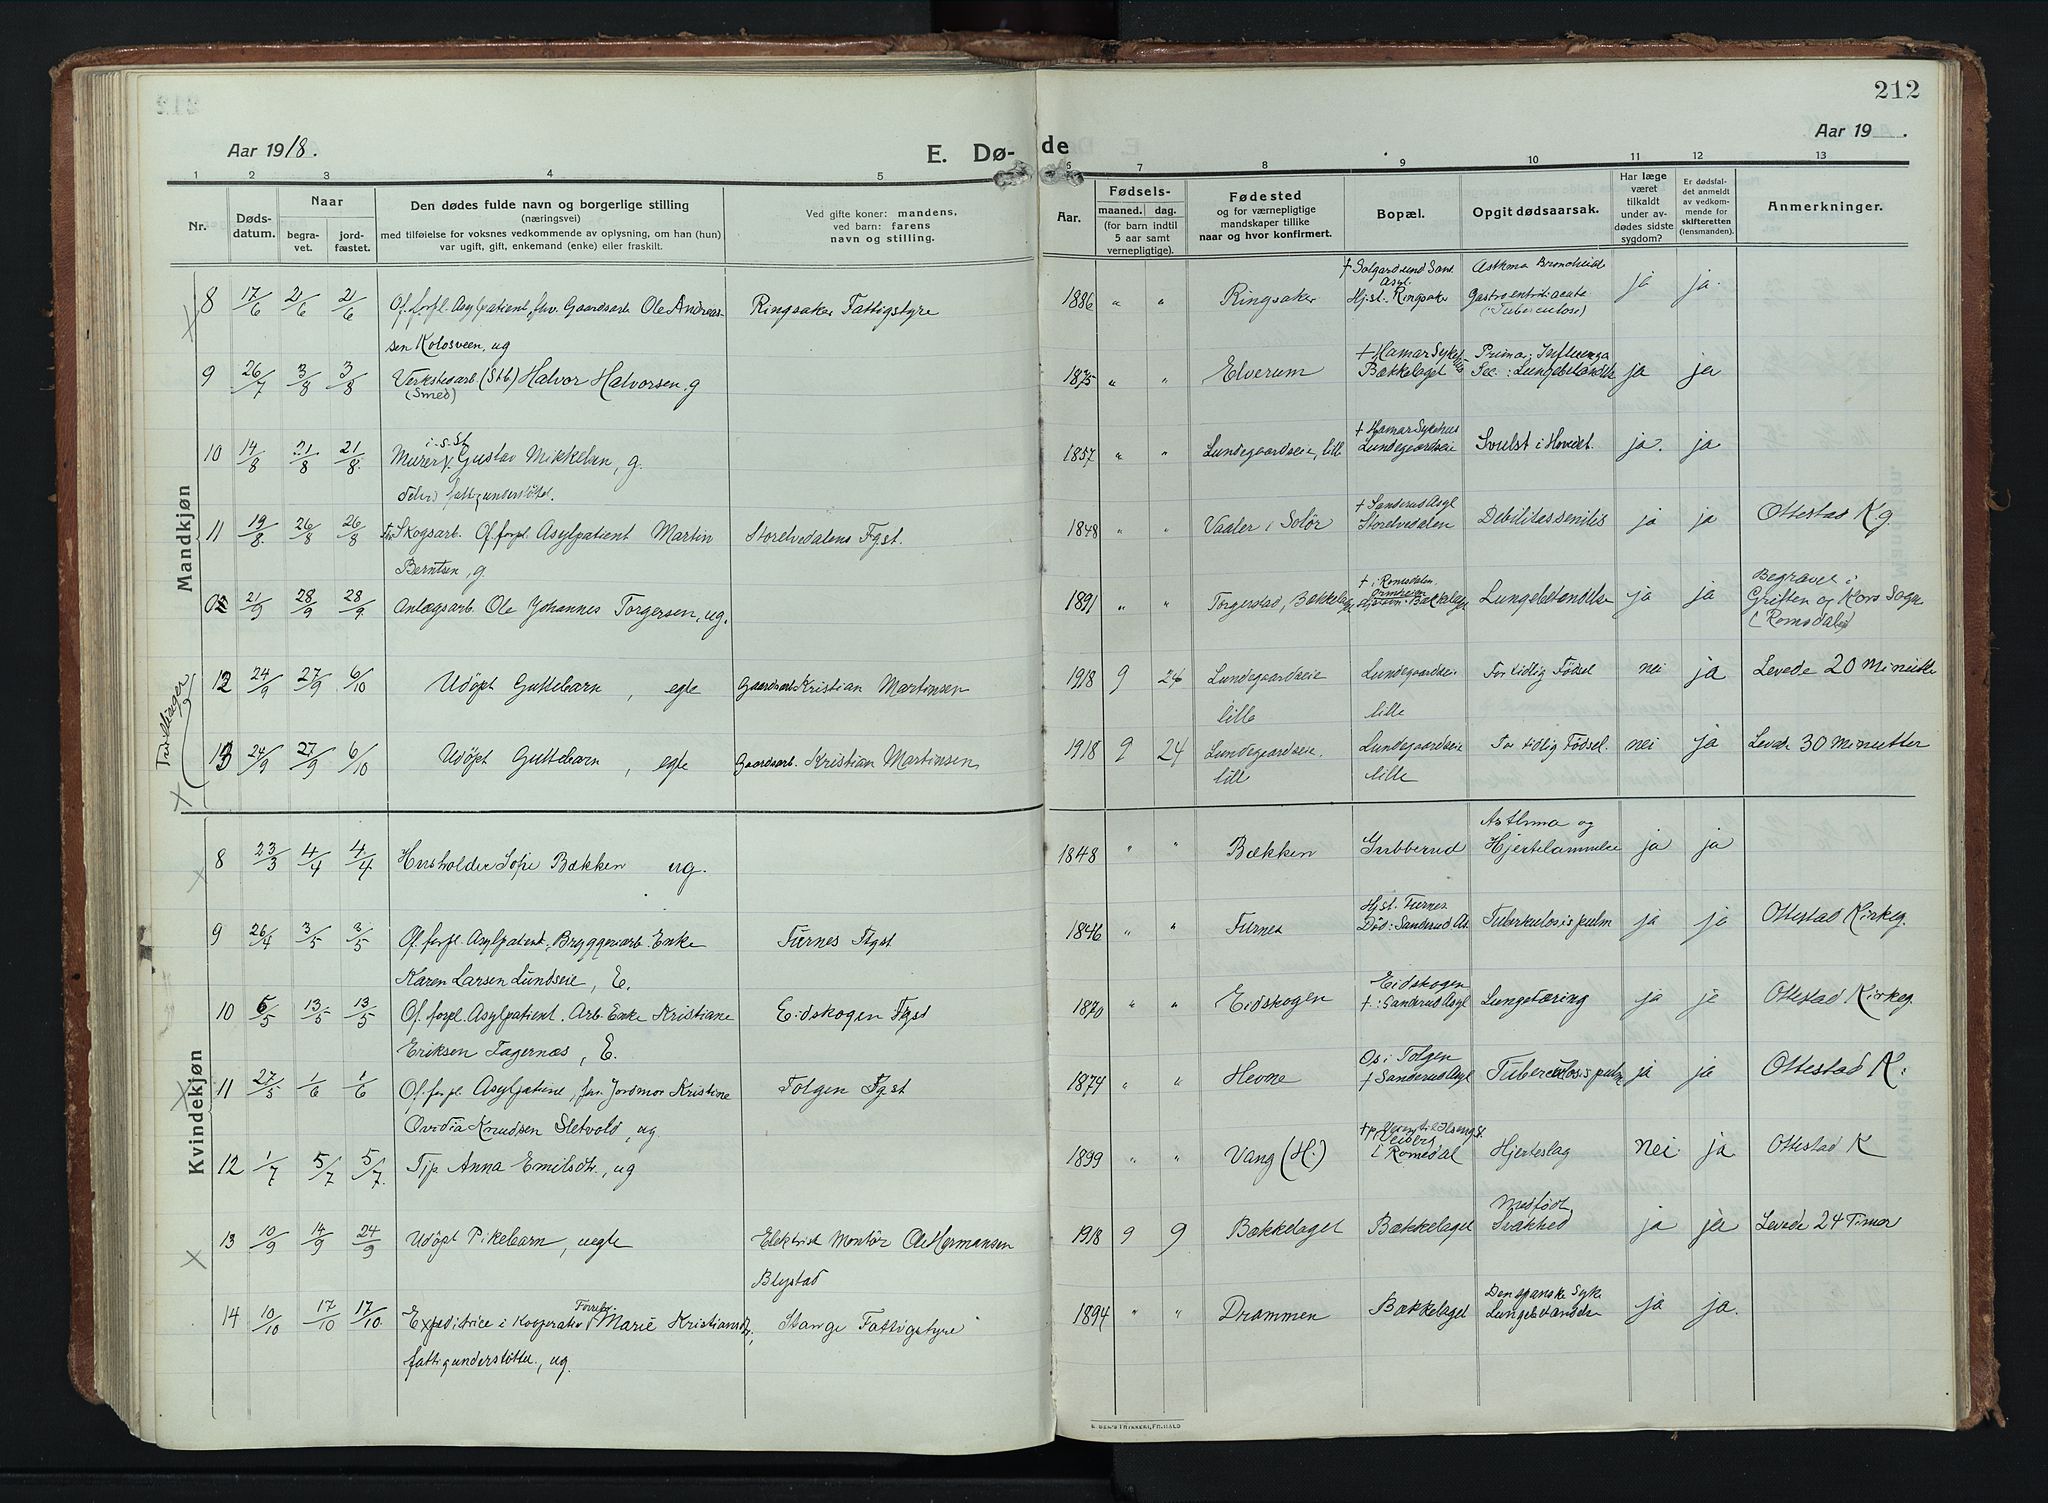 212
Aar 1918.
E. Dø-
de
Aar 19 .
1 2 3 4 5 6 7 8 9 10 11 12 13
Nr.
Døds-
datum.
Naar
begra-
vet.
jord-
fæstet.
Den dødes fulde navn og borgerlige stilling
(næringsvei)
med tilføielse for voksnes vedkommende av oplysning, om han (hun)
var ugift, gift, enkemand (enke) eller fraskilt.
Ved gifte koner: mandens,
ved barn: farens
navn og stilling.
Aar.
Fødsels-
maaned. dag.
(for barn indtil
5 aar samt
vernepligtige).
Fødested
og for værnepligtige
mandskaper tillike
naar og hvor konfirmert.
Bopæl.
Opgit dødsaarsak.
Har læge
været
tilkaldt
under av-
dødes sidste
sygdom?
Er dødsfal-
det anmeldt
av vedkom-
mende for
skifteretten
(lensmanden).
Anmerkninger.
Mandkjøn
8 17/6 21/6 21/6 Of. forpl. Asylpatient, fhv. Gaardsarb. Ole Andreas- Ringsaker Fattigstyre 1886 " " Ringsaker † Solgaardsund San. Asyl. Hjst. Ringsaker Asthma Bronchiale Gastroentrit. acuta (Tuberculose) ja ja.
sen Kolosveen, ug
9 26/7 3/8 3/8 Verkstedarb (Stb) Halvor Halvorsen, g 1875 " " Elverum † Hamar Sykehus Bækkelaget Prima: Influenza Sec.: Lungebetændelse ja ja
(Smed)
10 14/8 21/8 21/8 Murer i.s.st Gustav Mikkelsen, g. 1857 " " Lundegaardseie, lille † Hamar Sykehus Lundegaardseie Svulst i Hovedet. ja. ja
delvis fattigunderstøttet.
11 19/8 26/8 26/8 fhv Skogsarb. Of. forpl. Asylpatient Martin Storelvedalens Fgst. 1848 " " Vaaler i Solør † Sanderud Asyl Storelvedalen Debilitas senilis ja ja Ottestad Kg.
Berntsen, g.
21/9 28/9 28/9 Anlægsarb. Ole Johannes Torgersen, ug. 1891 " " Torgerstad, Bækkelaget † i Romsdalen. Bækkelaget Lungebetændelse ja ja Begravet i Griften og Kors Sogn (Romsdalen)
Tvillinger
12 24/9 27/9 6/10 Udøpt Guttebarn, egte Gaardsarb. Kristian Martinsen 1918 9 24 Lundegaardseie lille Lundegaardseie lille For tidlig Fødsel nei ja Levede 20 Minutter
13 24/9 27/9 6/10 Udøpt Guttebarn, egte Gaardsarb. Kristian Martinsen 1918 9 24 Lundegaardseie lille Lundegaardseie lille For tidlig Fødsel nei ja Levede 30 Minutter
Kvindekjøn
8 23/3 4/4 4/4 Husholder Sofie Bækken ug. 1848 " " Bækken Gubberud Asthma og Hjertelammelse ja ja
9 26/4 3/5 3/5 Of. forpl. Asylpatient. Bryggeriarb. Enke Furnes Fgst 1846 " " Furnes Hjst. Furnes Død: Sanderud As. Tuberkulosis pulm ja ja Ottestad Kirkeg.
Karen Larsen Lundseie, E.
10 5/5 13/5 13/5 Of. forpl. Asylpatient. Arb. Enke Kristiane Eidskogen Fgst 1870 " " Eidskogen Eidskogen †: Sanderud Asyl Lungetæring ja ja Ottestad Kirkeg
Eriksen Fagernæs, E.
11 27/5 1/6 1/6 Of. forpl. Asylpatient, fhv. Jordmor Kristine Tolgen Fgst 1874 " " Hevne Os i Tolgen † Sanderud Asyl Tuberculosis pulm ja ja Ottestad K.
Ovidia Knudsen Sletvold, ug.
12 1/7 5/7 5/7. Tjp Anna Emilsdtr., ug 1899 " " Vang (H.) i Romedal Hjerteslag nei ja Ottestad K
13 10/9 14/9 24/9 Udøpt Pikebarn, uegte Elektrisk Montør Ole Hermansen 1918 9 9 Bækkelaget Bækkelaget Medfødt Svakhed ja ja Levede 24 Timer
Blystad
14 10/10 17/10 17/10 Expeditrice i Kooperativ Forretn. Marie Kristiansdtr, Stange Fattigstyre 1894 " " Drammen Bækkelaget Den spanske Syke Lungebetændelse ja ja.
fattigunderstøttet, ug.